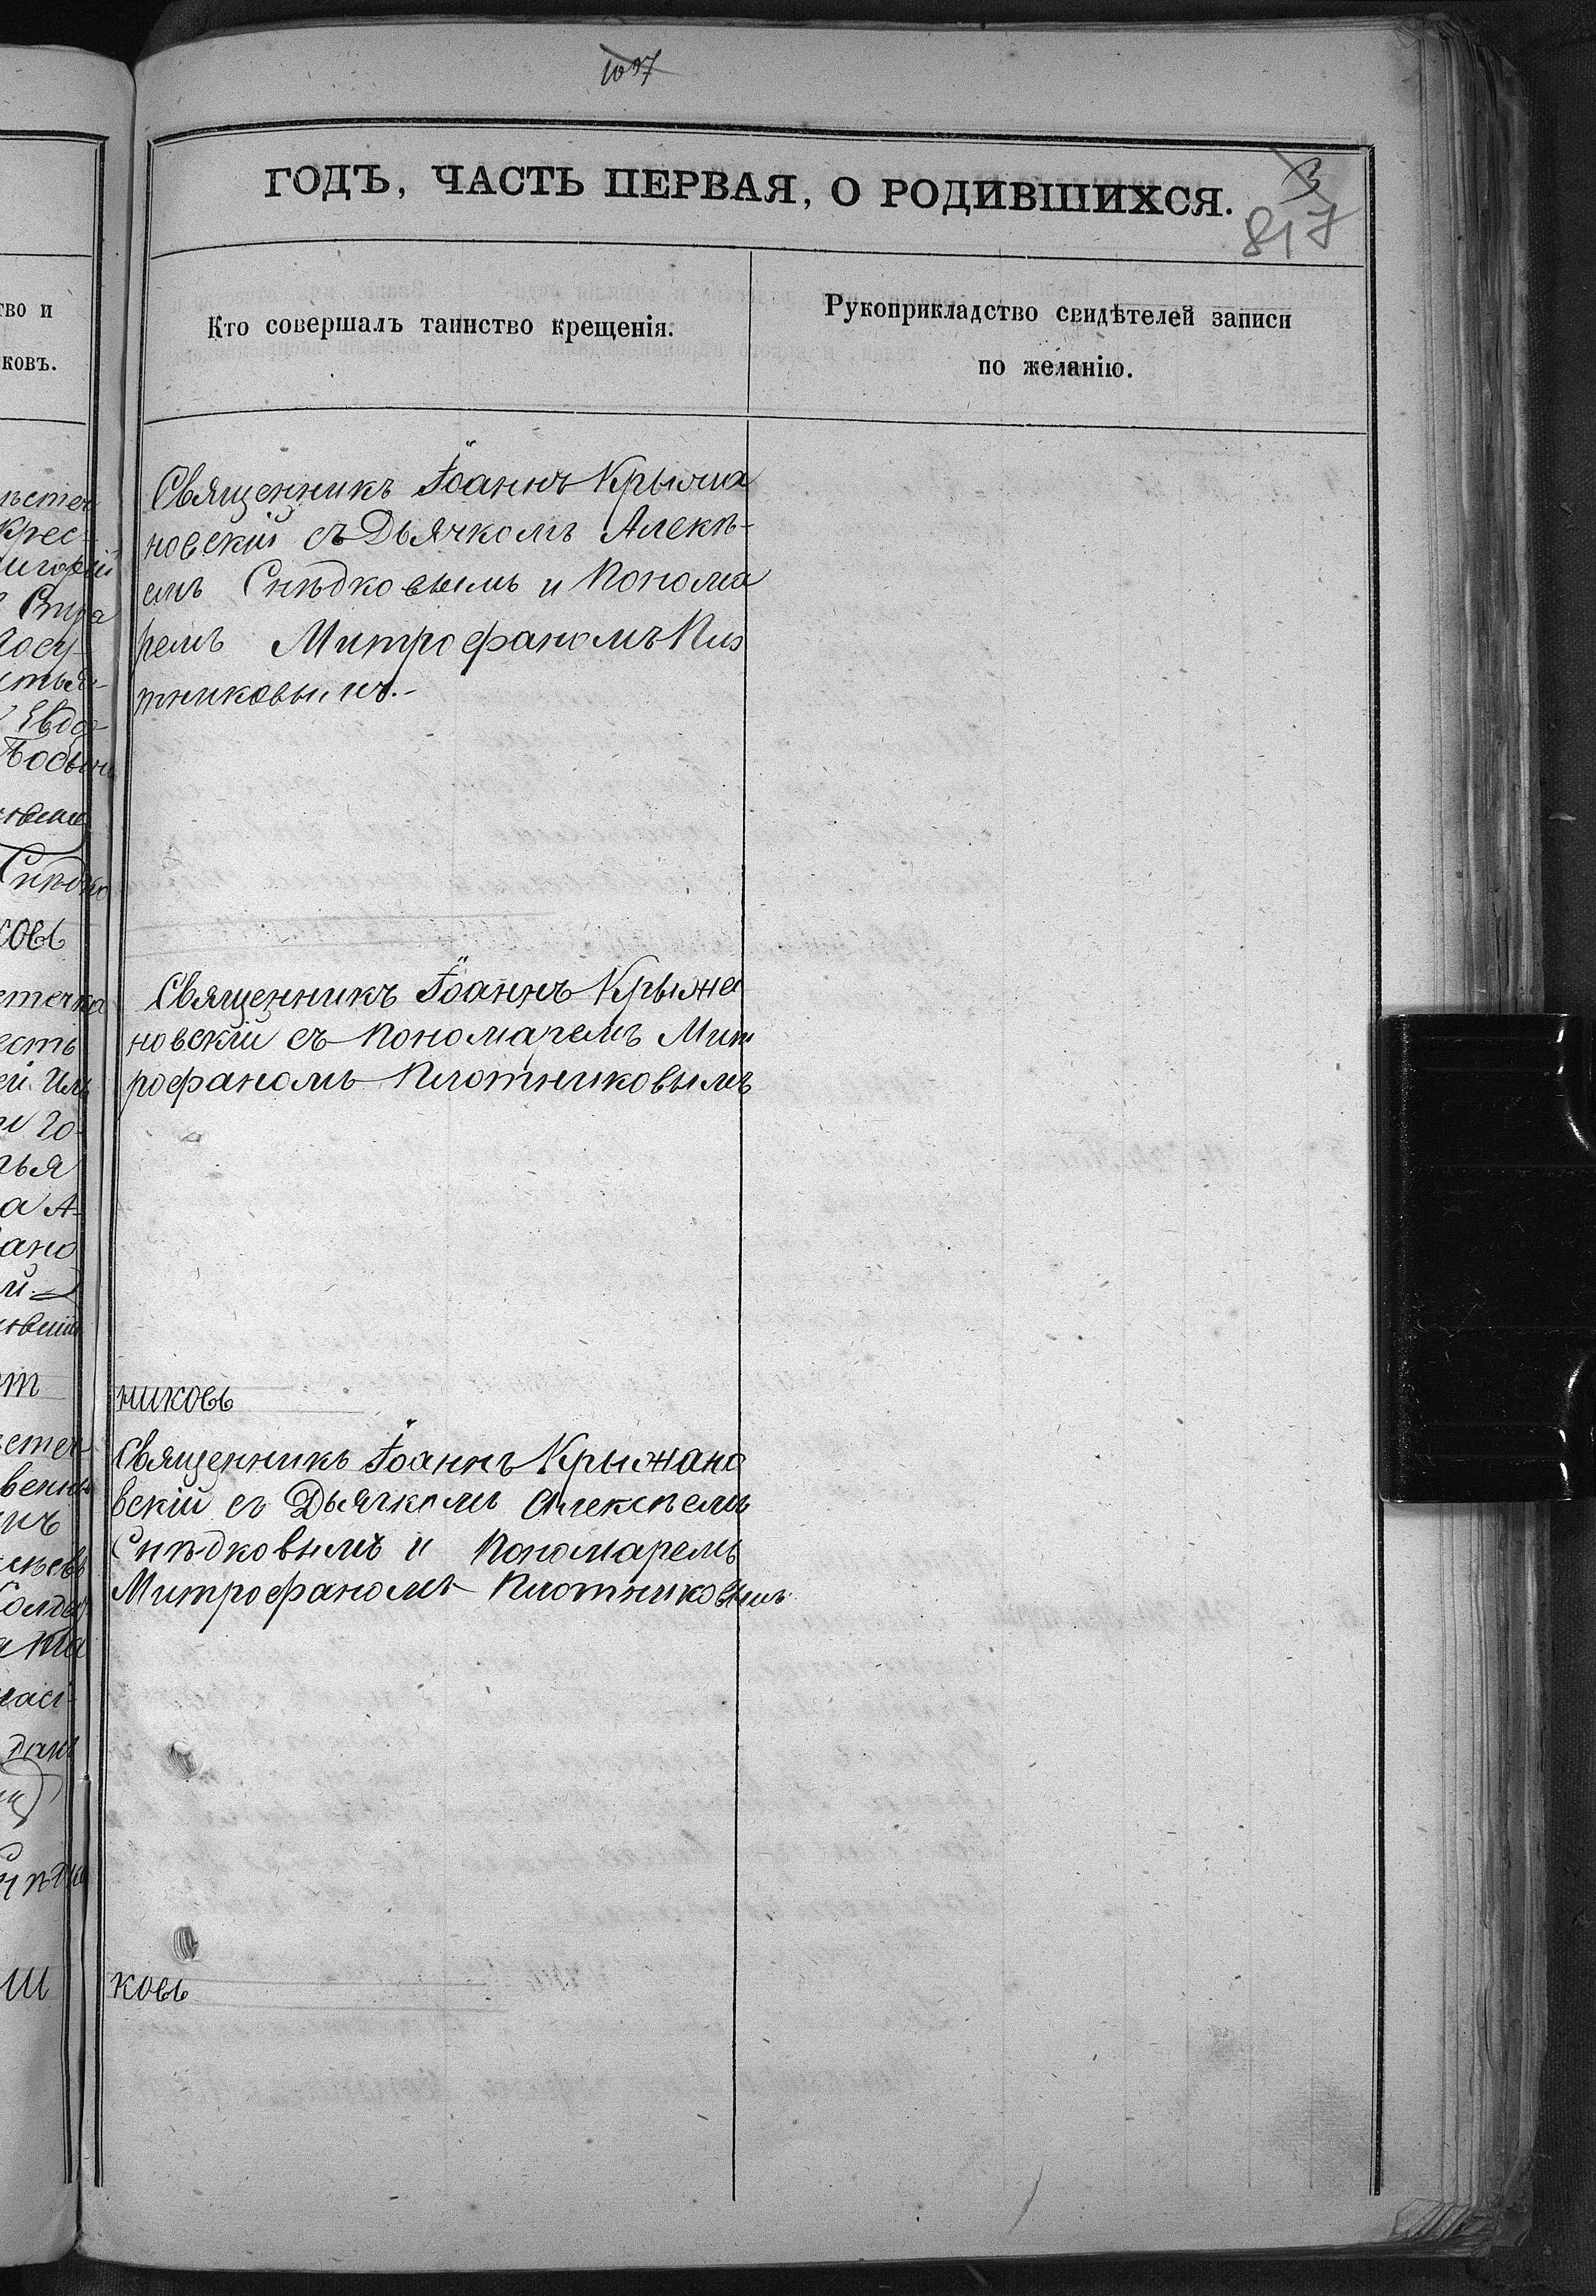 1037
ГОДЪ, ЧАСТЬ ПЕРВАЯ, О РОДИВШИХСЯ.
3
817
тво и
ковъ.
Кто совершалъ таинство крещенія.
Рукоприкладство свидѣтелей записи
по желанію.
Священникъ Іоаннъ Крыжа
новскій съ Дьячкомъ Алексѣ-
емъ Снѣдковымъ и Понома
ремъ Митрофаномъ Пло
тниковымъ.-
Священникъ Іоаннъ Крыжа
новскій съ Пономаремъ Мит
рофаномъ Плотниковымъ
никовъ
Священникъ Іоаннъ Крыжано
вскій съ Дьячкомъ Алексѣемъ
Снѣдковымъ и Пономаремъ
Митрофаномъ Плотниковымъ
ковъ